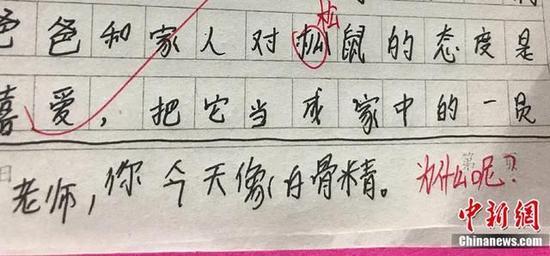 松
爸爸和家人对松鼠的态度是
喜爱，把它当成家中的一员
老师，你今天像白骨精。为什么呢？
中新网
Chinanews.com